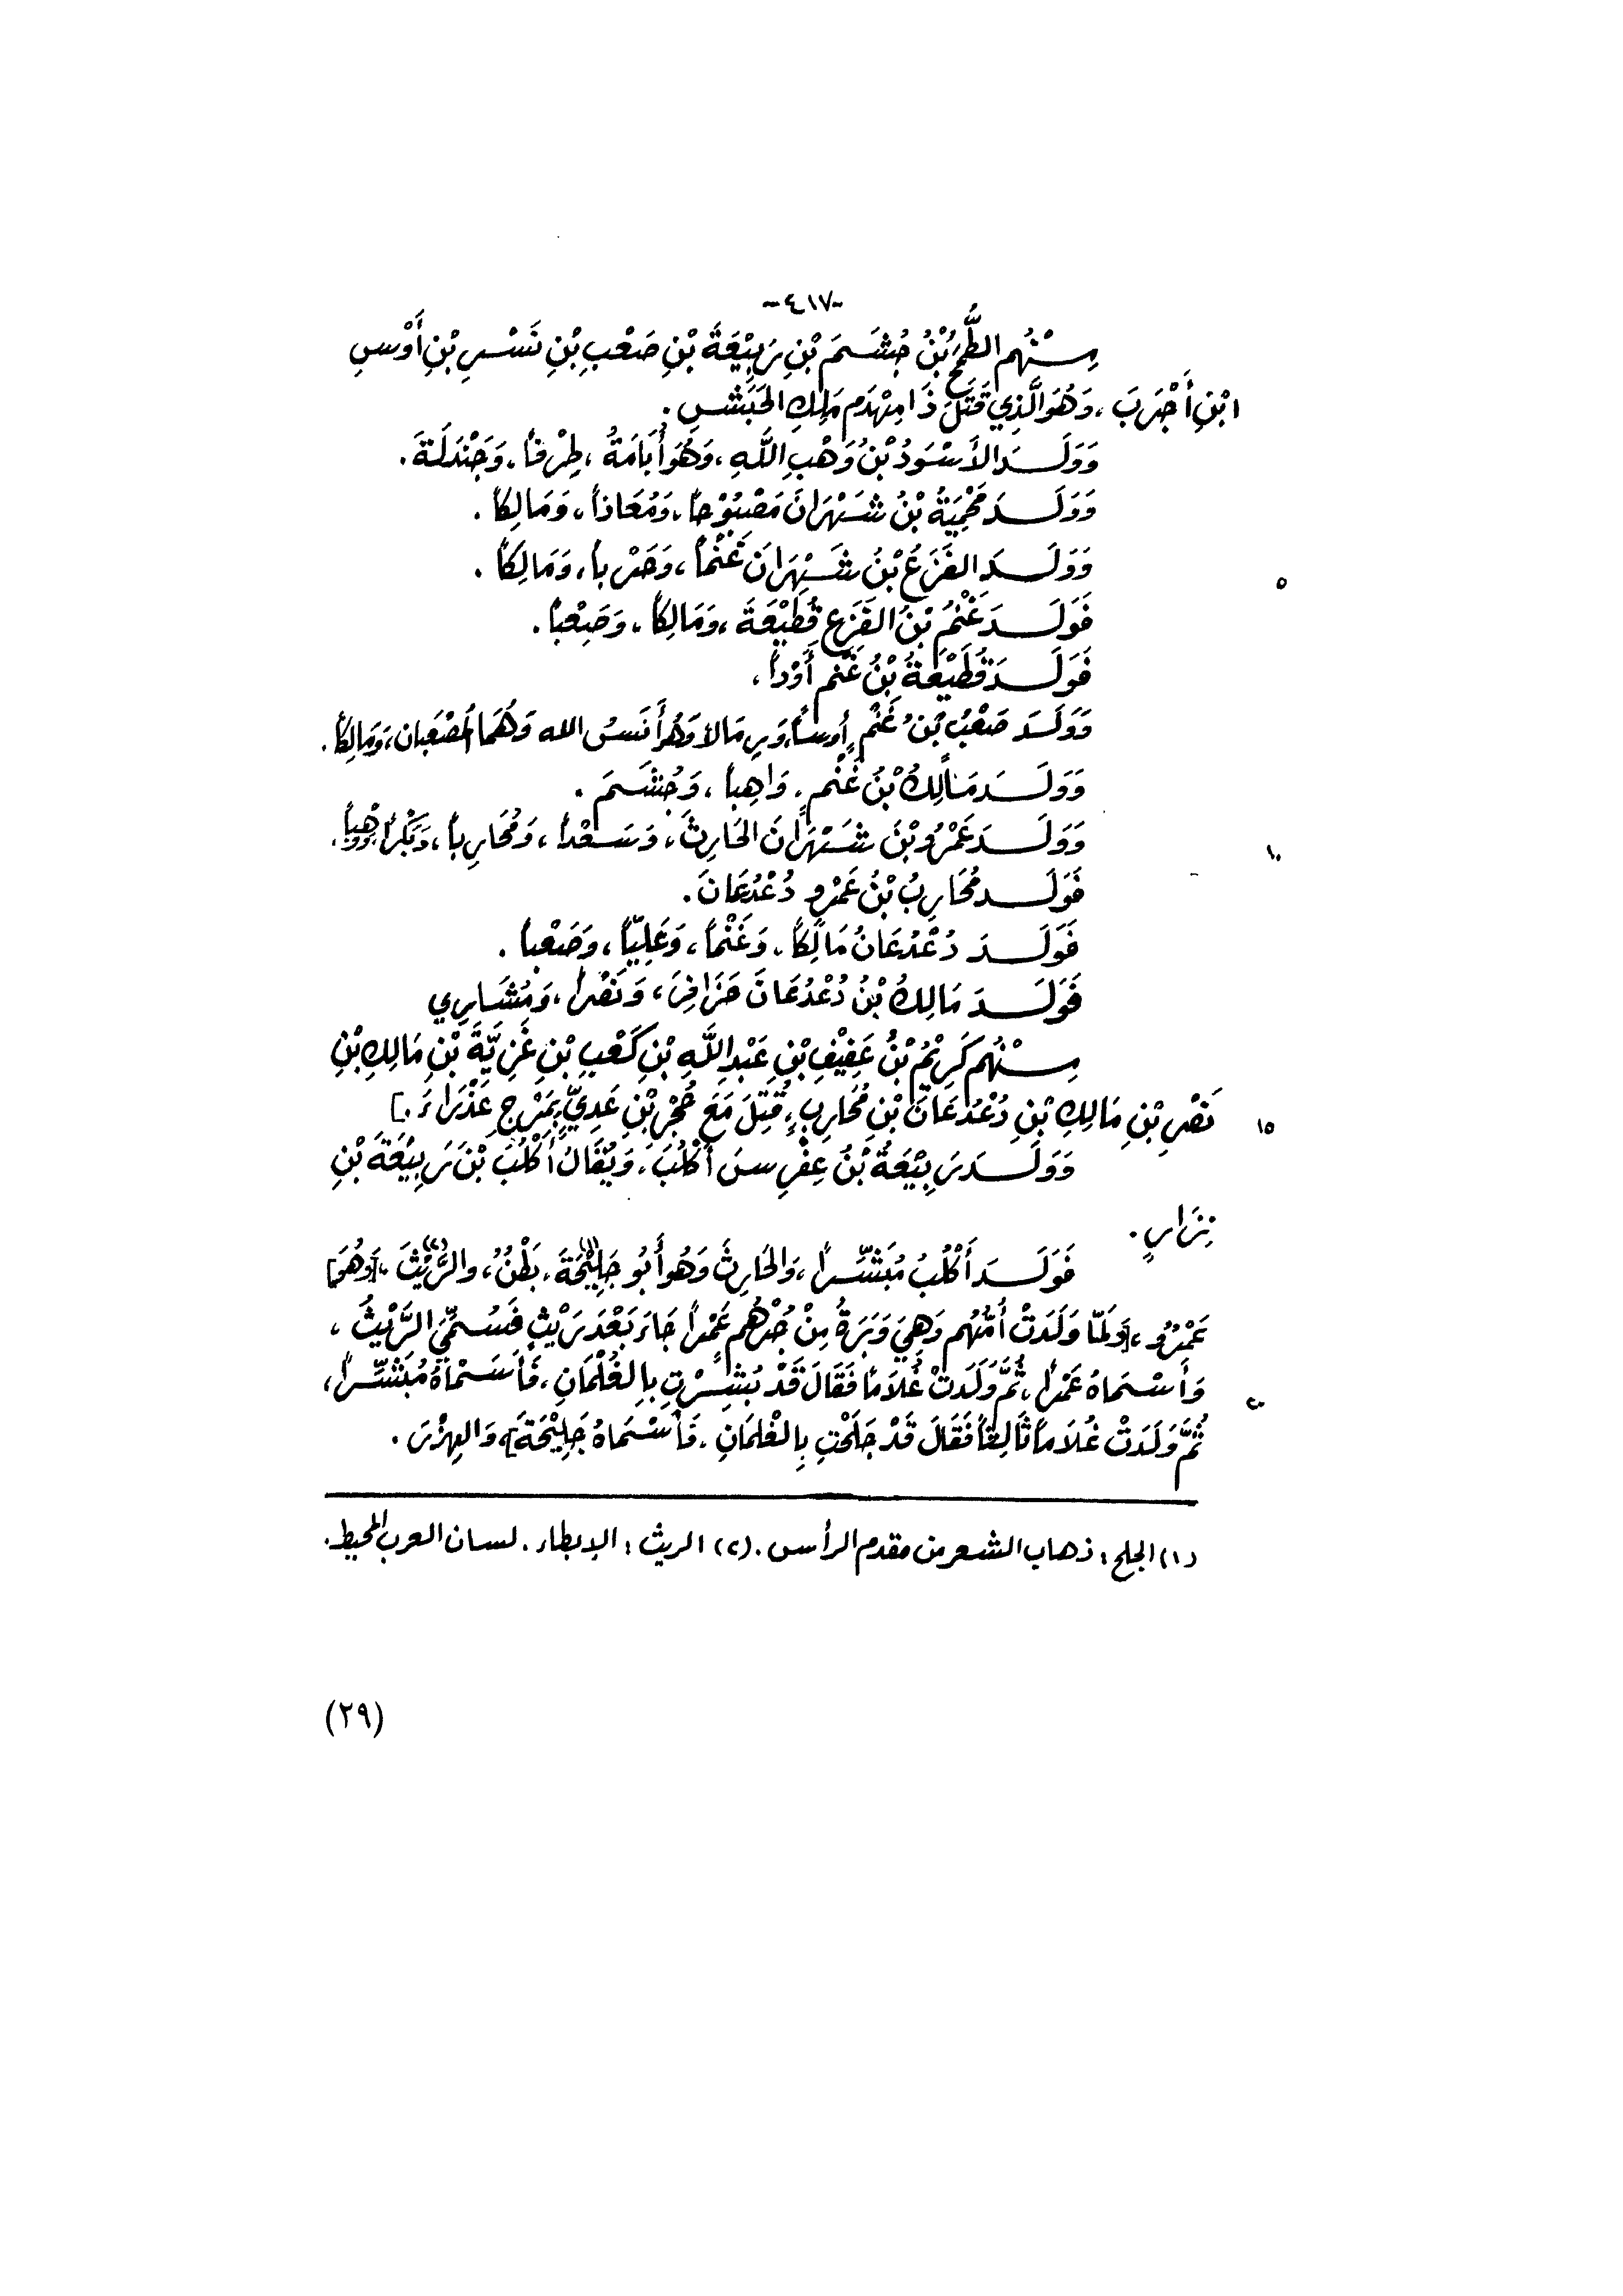 -٤١٧-
مِنْهُم الطُّمَحُ بْنُ جُشَمَ بْنِ رَبِيْعَةَ بْنِ صَعْبِ بْنِ نَسْرِ بْنِ أَوْسِ
ابْنِ أَجْرَبَ، وَهُوَ الَّذِي قَتَلَ ذَا مِهْدَمٍ مَلِكِ الحَبَشِ.
وَوَلَدَ الأَسْوَدُ بْنُ وَهْبِ اللَّهِ، وَهُوَ أُبَامَةُ، طِرْفاً، وَجَنْدَلَةَ.
وَوَلَدَ مَحْمِيَةُ بْنُ شَهْرَانَ مَصْبُوْحاً، وَمُعَاذاً، وَمَالِكاً.
وَوَلَدَ الفَزَعُ بْنُ شَهْرَانَ غَنْماً، وَحَرْباً، وَمَالِكاً.
٥
فَوَلَدَ غَنْمُ بْنُ الفَزَعِ قُطَيْعَةَ، وَمَالِكاً، وَصَعْباً.
فَوَلَدَ قُطَيْعَةُ بْنُ غَنْمٍ أَوْداً،
وَوَلَدَ صَعْبُ بْنُ غَنْمٍ أَوساً، ورِمَالاً وَهُوَ أَنَسُ الله وَهُمَا المُصْعَبان، وَمَالِكاً.
وَوَلَدَ مَالِكُ بْنُ غَنْمٍ، وَاهِباً، وَجُشَمَ.
وَوَلَدَ عَمْرُو بْنَ شَهْرَانَ الحَارِثَ، وَسَعْداً، وَمُحَارِباً، وَبَكْراً، وَوَهْباً.
١٠
فَوَلَدَ مُحَارِبُ بْنُ عَمْرٍو دُعْدُعَانَ.
فَوَلَدَ دُعْدُعَانُ مَالِكاً، وَغَنْماً، وَعَلِيّاً، وَصَعْباً.
فَوَلَدَ مَالِكُ بْنُ دُعْدُعَانَ حَزَافِرَ، وَنَصْراً، وَمُشَارِي
مِنْهُم كَرِيْمُ بْنُ عَفِيْفِ بْنِ عَبْدِ اللَّهِ بْنِ كَعْبِ بْنِ غَزِيَّةَ بْنِ مَالِكِ بْنِ
نَصْرِ بْنِ مَالِكِ بْنِ دُعْدُعَانَ بْنِ مُحَارِبٍ، قُتِلَ مَعَ حُجْرِ بْنِ عَدِيٍّ بِمَرْجِ عَذْرَاءَ.]
١٥
وَوَلَدَ رَبِيْعَةُ بْنُ عِفْرِسَ أَكْلُبَ، وَيُقَالُ أَكْلُبَ بْنَ رَبِيْعَةَ بْنِ
نِزَارٍ.
فَوَلَدَ أَكْلُبُ مُبَشِّراً، وَالحَارِثَ وَهُوَ أَبُو جَلِيْحَةَ(١)، بَطْنٌ، والرَّيْثَ(٢)، [وَهُوَ]
عَمْرٌو، [وَلَمّا وَلَدَتْ أُمُّهُم وَهِيَ وَبَرَةُ مِنْ جُرْهُمٍ عَمْراً جَاءَ بَعْدَ رَيْثٍ فَسُمِّيَ الرَّيْثَ،
وَأَسْمَاهُ عَمْراً، ثُمَّ وَلَدَتْ غُلَاماً فَقَالَ قَدْ بَشَّرْتِ بِالغُلْمَانِ، فَأَسْمَاهُ مُبَشِّراً،
٢٠
ثُمَّ وَلَدَتْ غُلَاماً ثَالِثاً فَقَالَ قَدْ جَلَحْتِ بِالْغُلمَانِ، فَأَسْمَاهُ جَلِيْحَةَ] وَالهِزْرَ.
(١) الجلح: ذهاب الشعر من مقدم الرأس. (٢) الريث: الإبطاء. لسان العرب المحيط.
(٢٩)